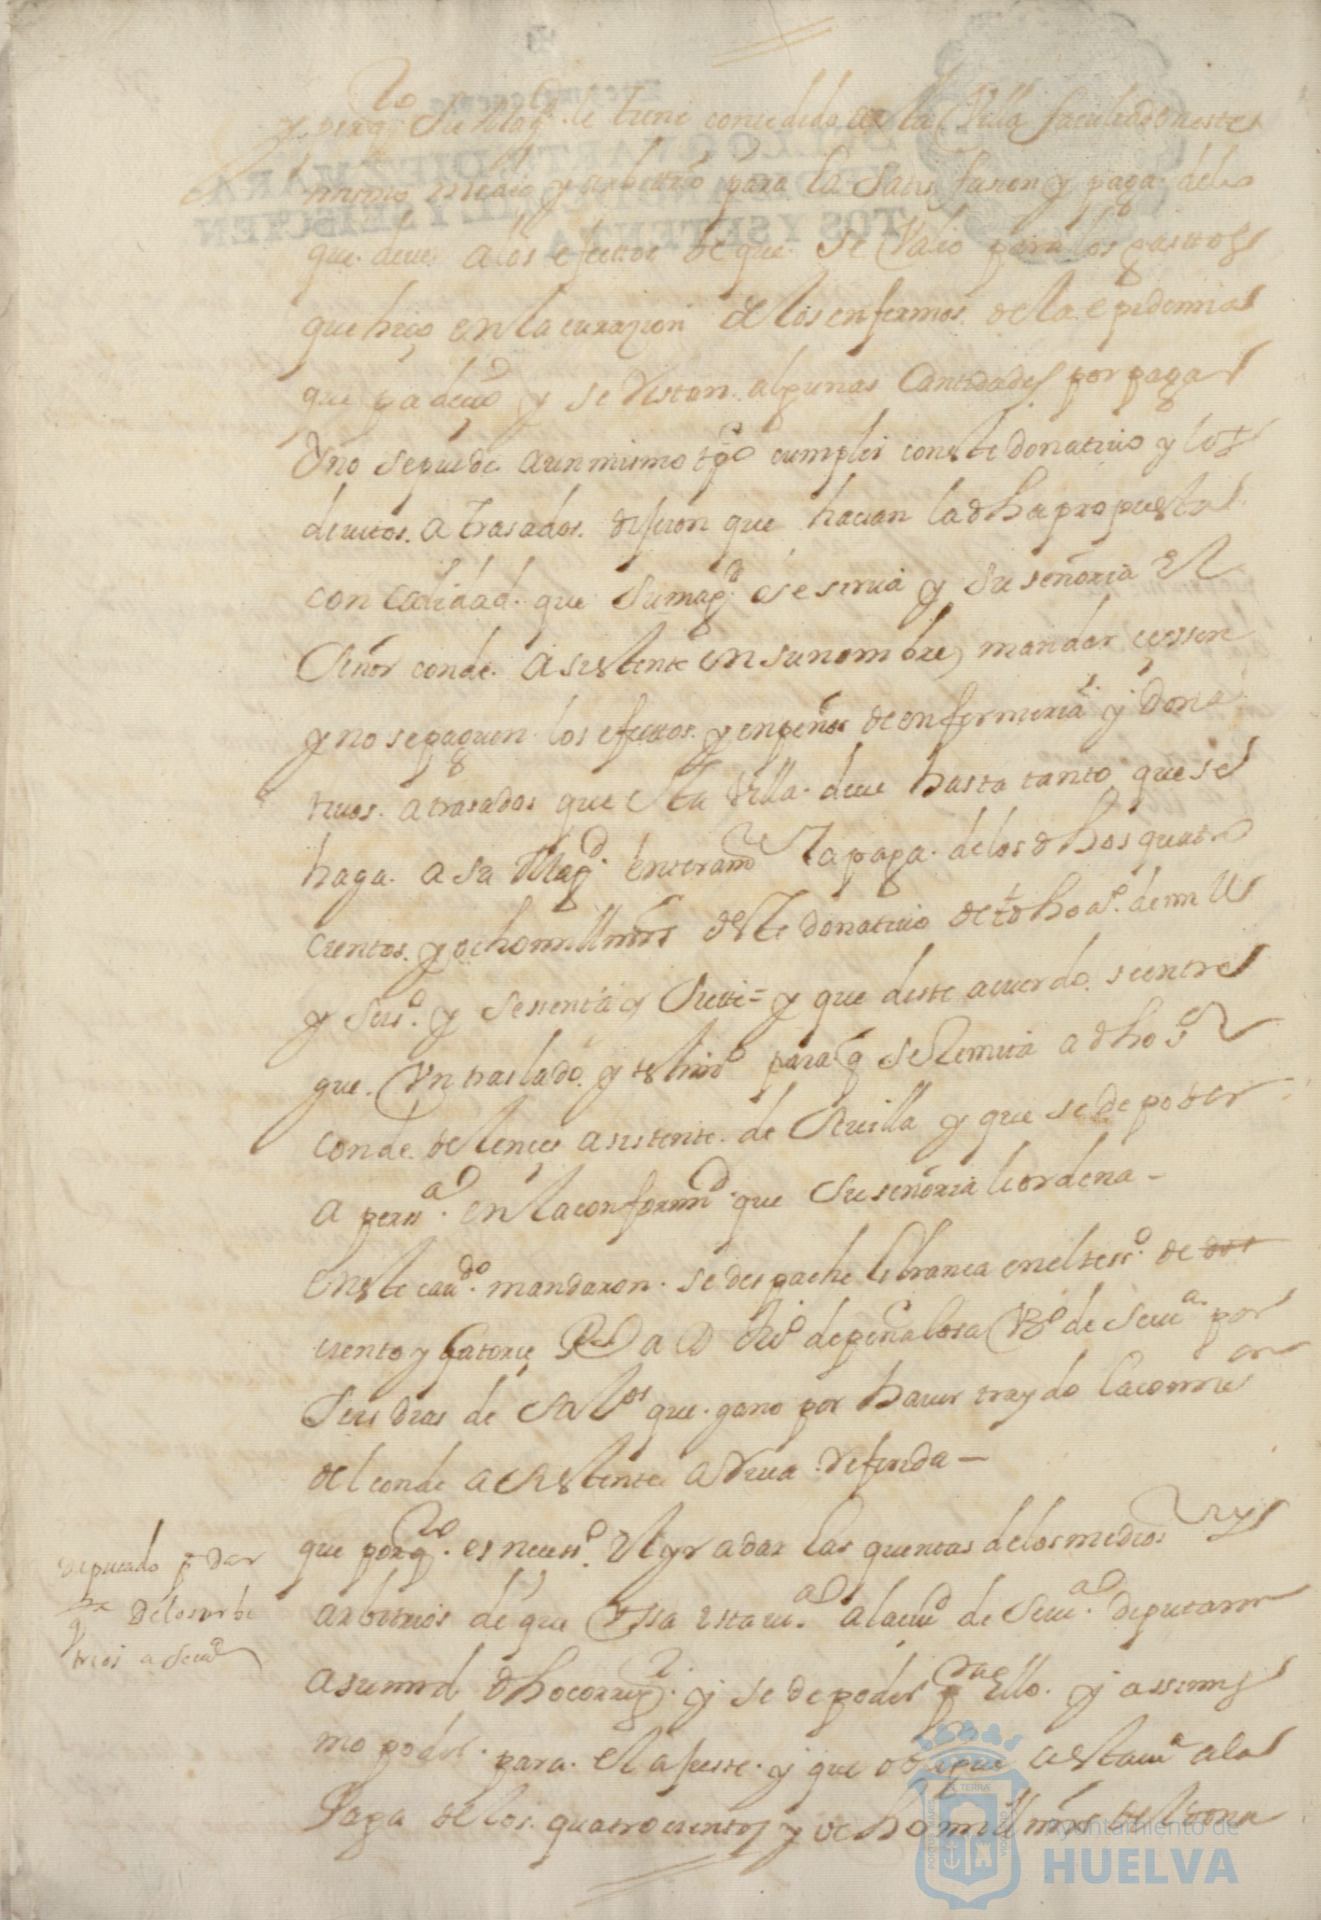 y porq Su Mag.d le tiene concedido a esta Villa facultad de este
mismo medio y arbitrio para la satisfazon y paga delo
que deue a los efectos de que se Valio para los gasttos
que hiço en la curazion de los enfermos de la epidemia
que padecio y se Restan algunas Cantidades por pagar
Y no se puede a un mismo tpo cumplir con este donatiuo y los
deuitos atrasados dijeron que hacian la dha propuesta
con calidad que su mag.d se sirua y su señoria el
Señor conde asistente en su nombre mandar cessen
y no se paguen los efectos y enpeños de enfermeria y Dona
tiuos atrasados que esta Villa deue hasta tanto que se
haga a su Mag.d enteram.te la paga de los dhos quatro
cientos y ocho mill mrs deste donatiuo de dho a.o de mill
y seis.o y sesenta y Siette = y que deste acuerdo se entre
gue Vn traslado y testim.o para q se Remita a dho s.r
conde de lences asistente de Seuilla y que se de poder
a pers.a en la conformi.d que su señoria lo ordena —
En este cau.do mandaron se despache librança en el tess.o de
ciento y catorce R.s a D de peñalosa V.o de Seu.a por
Seis dias de Sal.os que gano por hauer traydo la
del conde asistente a Riua Referida —
que porq.to es neces.o Yr a dar las quentas de los medios y
arbitrios de que Vssa esta vi.a a la ciu.d de Seui.a diputaron
a su md dho corrig.r y se de poder p.a Ello y assimis
mo poder para el ajuste y que obligue a esta vi.a a la
Paga de los quatrocientos y ocho mill mrs del dona
diputado p.a dar
q.tas de los arbi
trios a Seui.a
Ayuntamiento de
HUELVA